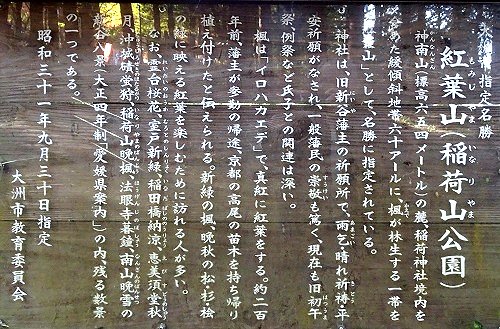 大洲市指定名勝
紅葉山(稲荷山公園)
もみじやま いなりやま
神南山(標高六五四メートル)の麓、稲荷神社境内を
含めた緩傾斜地帯六十アールに、楓が林生する一帯を
「紅葉山」として、名勝に指定されている。
神社は、旧新谷藩主の祈願所で、雨乞・晴れ祈祷・平
安祈願がなされ、一般藩民の崇敬も篤く、現在も旧初午
祭、例祭など氏子との関連は深い。
楓は「イロハカエデ」で、真紅に紅葉をする。約二百
年前、藩主が参勤の帰途、京都の高尾の苗木を持ち帰り
植え付けたと伝えられる。新緑の楓、晩秋の松・杉・桧
の緑に映える紅葉を楽しむために訪れる人が多い。
なお、霊谷桜花、室戸新緑、稲田橋納涼、恵美須堂秋
月、沖城蛍狩、稲荷山晩楓、法眼寺暮鐘、南山晩雪の
新谷八景(大正四年制「愛媛県案内」)の内、残る数景
の一つである。
昭和三十一年九月三十日指定
大洲市教育委員会